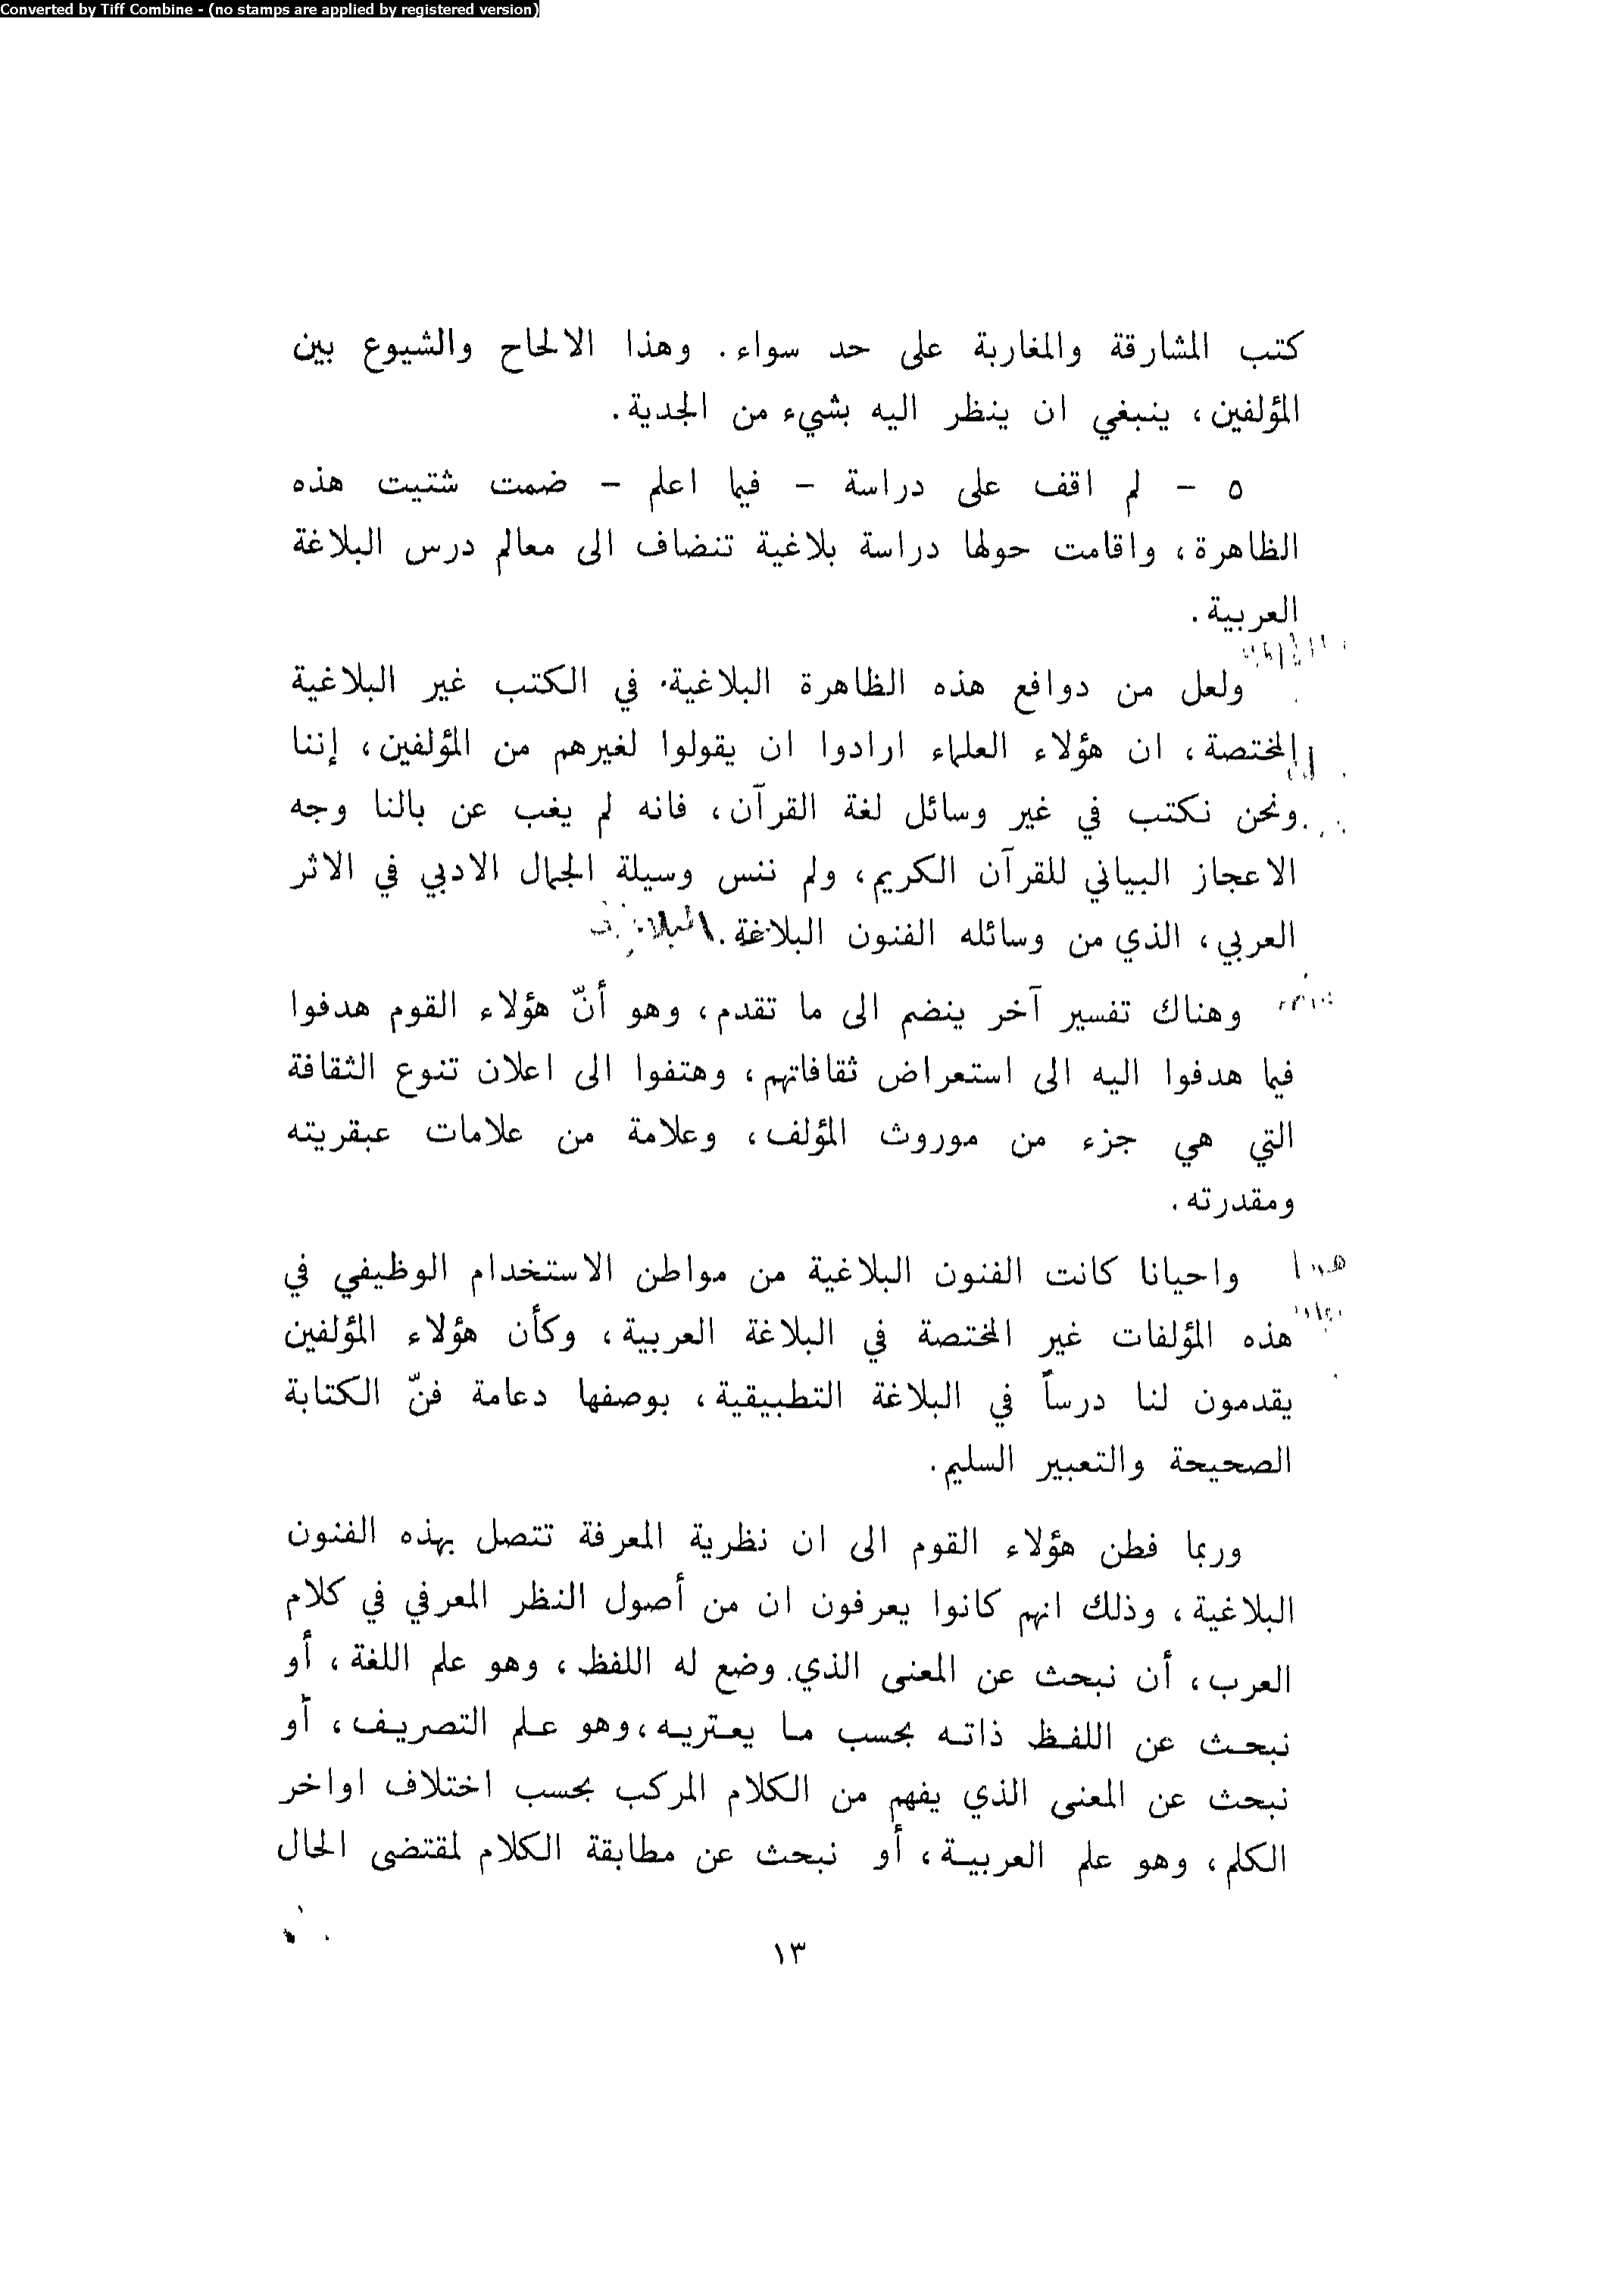 Converted by Tiff Combine - (no stamps are applied by registered version)
كتب المشارقة والمغاربة على حد سواء. وهذا الالحاح والشيوع بين
المؤلفين، ينبغي ان ينظر اليه بشيء من الجدية.
٥ - لم اقف على دراسة - فيما اعلم - ضمت شتيت هذه
الظاهرة، واقامت حولها دراسة بلاغية تنضاف الى معالم درس البلاغة
العربية.
ولعل من دوافع هذه الظاهرة البلاغية في الكتب غير البلاغية
المختصة، ان هؤلاء العلماء ارادوا ان يقولوا لغيرهم من المؤلفين، إننا
ونحن نكتب في غير وسائل لغة القرآن، فانه لم يغب عن بالنا وجه
الاعجاز البياني للقرآن الكريم، ولم ننس وسيلة الجمال الادبي في الاثر
العربي، الذي من وسائله الفنون البلاغة.
وهناك تفسير آخر ينضم الى ما تقدم، وهو أنّ هؤلاء القوم هدفوا
فيما هدفوا اليه الى استعراض ثقافاتهم، وهتفوا الى اعلان تنوع الثقافة
التي هي جزء من موروث المؤلف، وعلامة من علامات عبقريته
ومقدرته.
واحيانا كانت الفنون البلاغية من مواطن الاستخدام الوظيفي في
هذه المؤلفات غير المختصة في البلاغة العربية، وكأن هؤلاء المؤلفين
يقدمون لنا درساً في البلاغة التطبيقية، بوصفها دعامة فنّ الكتابة
الصحيحة والتعبير السليم.
وربما فطن هؤلاء القوم الى ان نظرية المعرفة تتصل بهذه الفنون
البلاغية، وذلك انهم كانوا يعرفون ان من أصول النظر المعرفي في كلام
العرب، أن نبحث عن المعنى الذي وضع له اللفظ، وهو علم اللغة، أو
نبحث عن اللفظ ذاته بحسب ما يعتريه، وهو علم التصريف، أو
نبحث عن المعنى الذي يفهم من الكلام المركب بحسب اختلاف اواخر
الكلم، وهو علم العربية، أو نبحث عن مطابقة الكلام لمقتضى الحال
١٣